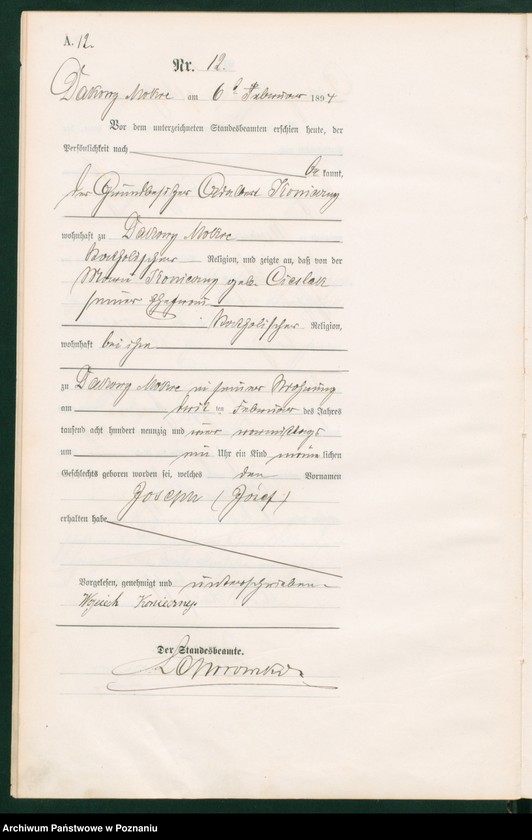 A. 12.
Nr. 12.
Dakowy Mokre am 6ten Februar 1894
Vor dem unterzeichneten Standesbeamten erschien heute, der
Persönlichkeit nach
be kannt,
der Grundbesitzer Adalbert Konieczny
wohnhaft zu Dakowy Mokre
katholischer Religion, und zeigte an, daß von der
Maria Konieczny geb. Cieslak
seiner Ehefrau
katholischer Religion,
wohnhaft bei ihm
zu Dakowy Mokre in seiner Wohnung
am Februar des Jahres
tausend acht hundert neunzig und vier vormittags
um Uhr ein Kind männlichen
Geschlechts geboren worden sei, welches den Vornamen
Joseph (Józef)
erhalten habe
Vorgelesen, genehmigt und unterschrieben
Wojciech Konieczny
Der Standesbeamte.
Archiwum Państwowe w Poznaniu